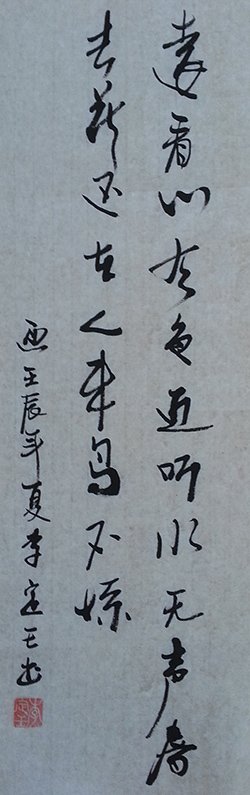 遠看山有色近听水无声春
去花还在人来鸟不惊
画壬辰年夏李定书